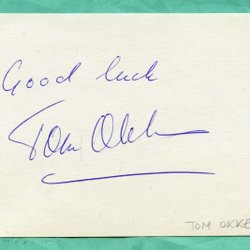 Good luck
Tom Okker
TOM OKKE